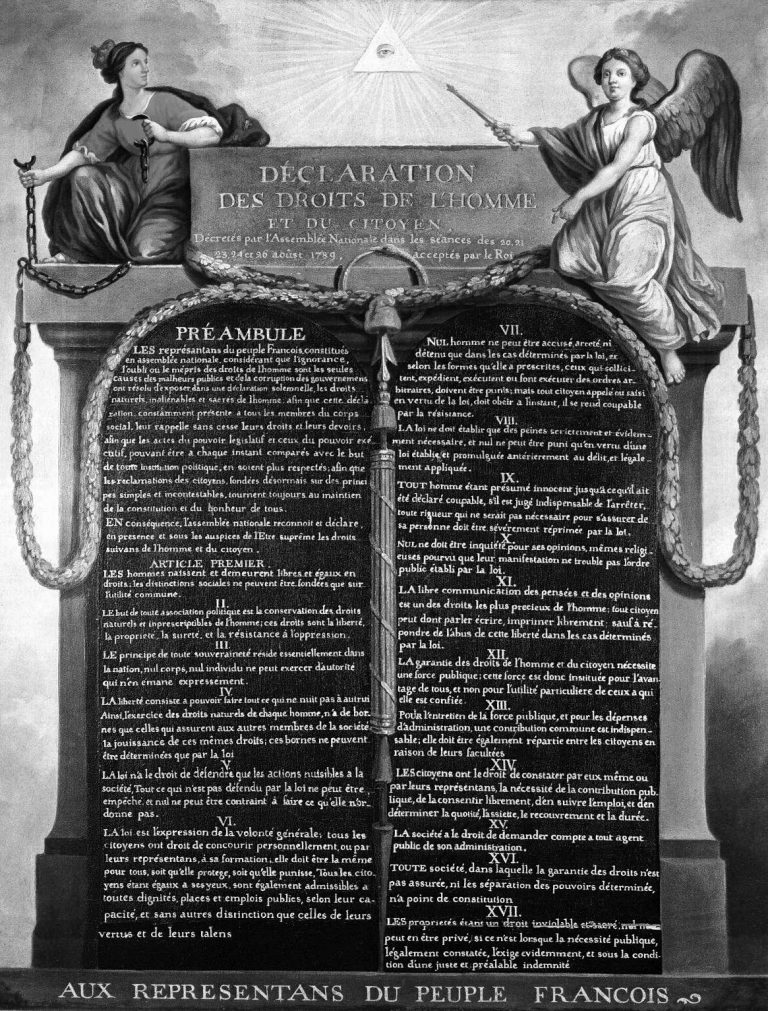 DÉCLARATION
DES DROITS DE L'HOMME
ET DU CITOYEN,
Décrétés par l'Assemblée Nationale dans les séances des 20. 21
23. 24 et 26 aoûst 1789, acceptés par le Roi
PRÉAMBULE
LES représantans du peuple François, constitués
en assemblée nationale, considérant que l'ignorance,
l'oubli ou le mépris des droits de l'homme sont les seules
causes des malheurs publics et de la corruption des gouvernemens
ont résolu d'exposer dans une déclaration solemnelle, les droits
naturels, inaliénables et sacrés de l'homme; afin que cette décla
ration, constamment présente a tous les membres du corps
social, leur rappelle sans cesse leurs droits et leurs devoirs,
afin que les actes du pouvoir legislatif et ceux du pouvoir exé
cutif, pouvant être a chaque instant comparés avec le but
de toute institution politique, en soient plus respectés; afin que
les reclamations des citoyens, fondées désormais sur des princi
pes simples et incontestables, tournent toujours au maintien
de la constitution et du bonheur de tous.
EN conséquence, l'assemblée nationale reconnoit et déclare,
en presence et sous les auspices de l'Etre suprême les droits
suivans de l'homme et du citoyen.
ARTICLE PREMIER.
LES hommes naissent et demeurent libres et égaux en
droits; les distinctions sociales ne peuvent être fondées que sur
l'utilité commune.
II.
LE but de toute association politique est la conservation des droits
naturels et inprescripibles de l'homme; ces droits sont la liberté,
la proprieté, la sureté, et la résistance à l'oppression.
III.
LE principe de toute souveraineté réside essentiellement dans
la nation, nul corps, nul individu ne peut exercer d'autorité
qui n'en émane expressement.
IV.
LA liberté consiste a pouvoir faire tout ce qui ne nuit pas à autrui
Ainsi, l'exercice des droits naturels de chaque homme, n'a de bor-
nes que celles qui assurent aux autres membres de la société
la jouissance de ces mêmes droits; ces bornes ne peuvent
être déterminées que par la loi
V.
LA loi n'a le droit de défendre que les actions nuisibles a la
société, Tout ce qui n'est pas défendu par la loi ne peut être
empêché, et nul ne peut être contraint à faire ce qu'elle n'or-
donne pas.
VI.
LA loi est l'expression de la volonté générale; tous les
citoyens ont droit de concourir personnellement, ou par
leurs représentans, à sa formation; elle doit être la même
pour tous, soit qu'elle protege, soit qu'elle punisse, Tous les cito
yens étant égaux à ses yeux, sont également admissibles a
toutes dignités, places et emplois publics, selon leur ca-
pacité, et sans autres distinction que celles de leurs
vertus et de leurs talens
VII.
NUL homme ne peut être accusé, arreté ni
détenu que dans les cas déterminés par la loi, et
selon les formes qu'elle a prescrites, ceux qui sollici-
tent, expédient, exécutent ou font exécuter des ordres ar-
bitraires, doivent être punis; mais tout citoyen appelé ou saisi
en vertu de la loi, doit obéir a l'instant, il se rend coupable
par la résistance.
VIII.
LA loi ne doit établir que des peines strictement et évidem-
ment nécessaire, et nul ne peut être puni qu'en vertu d'une
loi établie et promulguée antérierement au délit, et légale-
ment appliquée.
IX.
TOUT homme étant présumé innocent jusqu'à ce qu'il ait
été déclaré coupable, s'il est jugé indispensable de l'arrêter,
toute rigueur qui ne serait pas nécessaire pour s'assurer de
sa personne doit être sévèrement réprimée par la loi.
X.
NUL ne doit être inquiété pour ses opinions, mêmes religi
euses pourvu que leur manifestation ne trouble pas l'ordre
public établi par la loi.
XI.
LA libre communication des pensées et des opinions
est un des droits les plus precieux de l'homme; tout citoyen
peut dont parler écrire, imprimer librement; sauf à ré-
pondre de l'abus de cette liberté dans les cas déterminés
par la loi.
XII.
LA garantie des droits de l'homme et du citoyen nécessite
une force publique; cette force est donc instituée pour l'avan
tage de tous, et non pour l'utilité particuliere de ceux a qui
elle est confiée.
XIII.
POUR l'entretien de la force publique, et pour les dépenses
d'administration, une contribution commune est indispen-
sable; elle doit être également répartie entre les citoyens en
raison de leurs facultées
XIV.
LES citoyens ont le droit de constater par eux même ou
par leurs représentans, la nécessité de la contribution pub-
lique, de la consentir librement, d'en suivre l'emploi, et d'en
déterminer la quotité, l'assiette, le recouvrement et la durée.
XV.
LA société a le droit de demander compte a tout agent
public de son administration.
XVI.
TOUTE société, dans laquelle la garantie des droits n'est
pas assurée, ni les séparation des pouvoirs déterminée,
n'a point de constitution
XVII.
LES proprietés étant un droit inviolable et sacré, nul ne
peut en être privé, si ce n'est lorsque la nécessité publique,
légalement constatée, l'exige evidemment, et sous la condi
tion d'une juste et préalable indemnité
AUX REPRESENTANS DU PEUPLE FRANCOIS